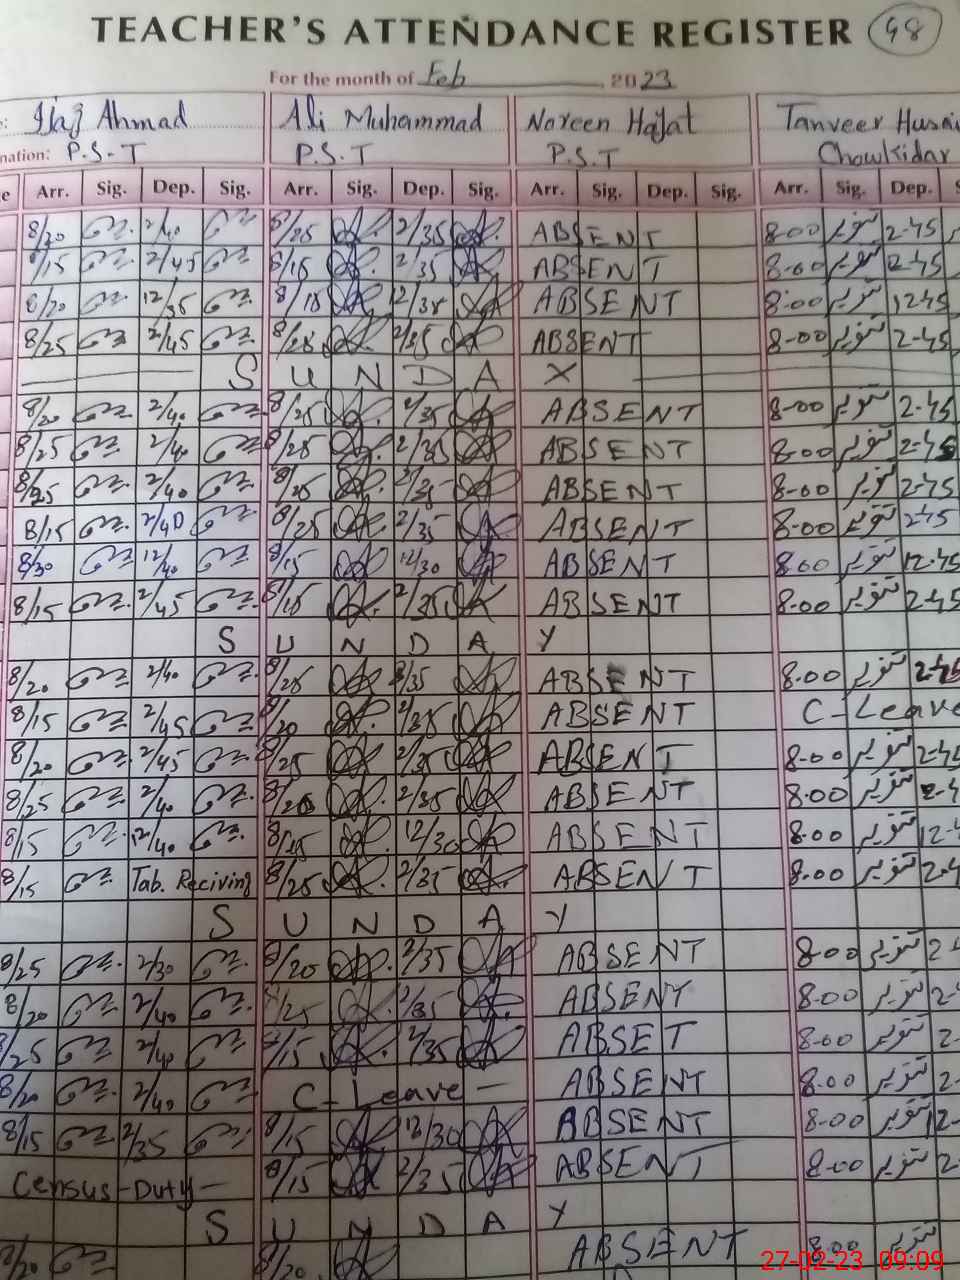 TEACHER'S ATTENDANCE REGISTER 98
For the month of Feb, 2023
Ijaz Ahmad Ali Muhammad Noreen Hayat Tanveer
nation: P.S.T P.S.T P.S.T Chowkidar
Arr. Sig. Dep. Sig. Arr. Sig. Dep. Sig. Arr. Sig. Dep. Sig. Arr. Sig. Dep.
8/20 2/40 8/25 2/35 ABSENT 8-00 تنویر 2-45
8/15 2/45 8/15 2/35 ABSENT 8-00 تنویر 2-45
8/20 12/35 8/18 12/38 ABSENT 8-00 تنویر 12-45
8/25 2/45 8/25 2/35 ABSENT 8-00 تنویر 2-45
S U N D A Y
8/20 2/40 8/25 2/35 ABSENT 8-00 تنویر 2-45
8/25 2/40 8/25 2/35 ABSENT 8-00 تنویر 2-45
8/25 2/40 8/25 2/35 ABSENT 8-00 تنویر 2-45
8/15 2/40 8/25 2/35 ABSENT 8-00 تنویر 2-45
8/30 12/40 8/15 12/30 ABSENT 8-00 تنویر 12-45
8/15 2/45 8/15 2/35 ABSENT 8-00 تنویر 2-45
S U N D A Y
8/20 2/40 8/25 2/35 ABSENT 8-00 تنویر 2-45
8/15 2/45 8/20 2/35 ABSENT C-Leave
8/20 2/45 8/25 2/35 ABSENT 8-00 تنویر
8/25 2/40 8/20 2/35 ABSENT 8-00 تنویر
8/15 12/40 8/15 12/30 ABSENT 8-00 تنویر
8/15 Tab. Reciving 8/25 2/35 ABSENT 8-00 تنویر
S U N D A Y
8/25 2/30 8/20 2/35 ABSENT 8-00 تنویر
8/20 2/40 8/25 2/35 ABSENT 8-00 تنویر
8/25 2/40 8/15 2/35 ABSET 8-00 تنویر
8/20 2/40 C-Leave- ABSENT 8-00 تنویر
8/15 2/35 8/15 12/30 ABSENT 8-00 تنویر
Census-Duty- 8/15 2/35 ABSENT 8-00 تنویر
S U N D A Y
8/20 8/20 ABSENT 8-00 تنویر
27-02-23 09:09